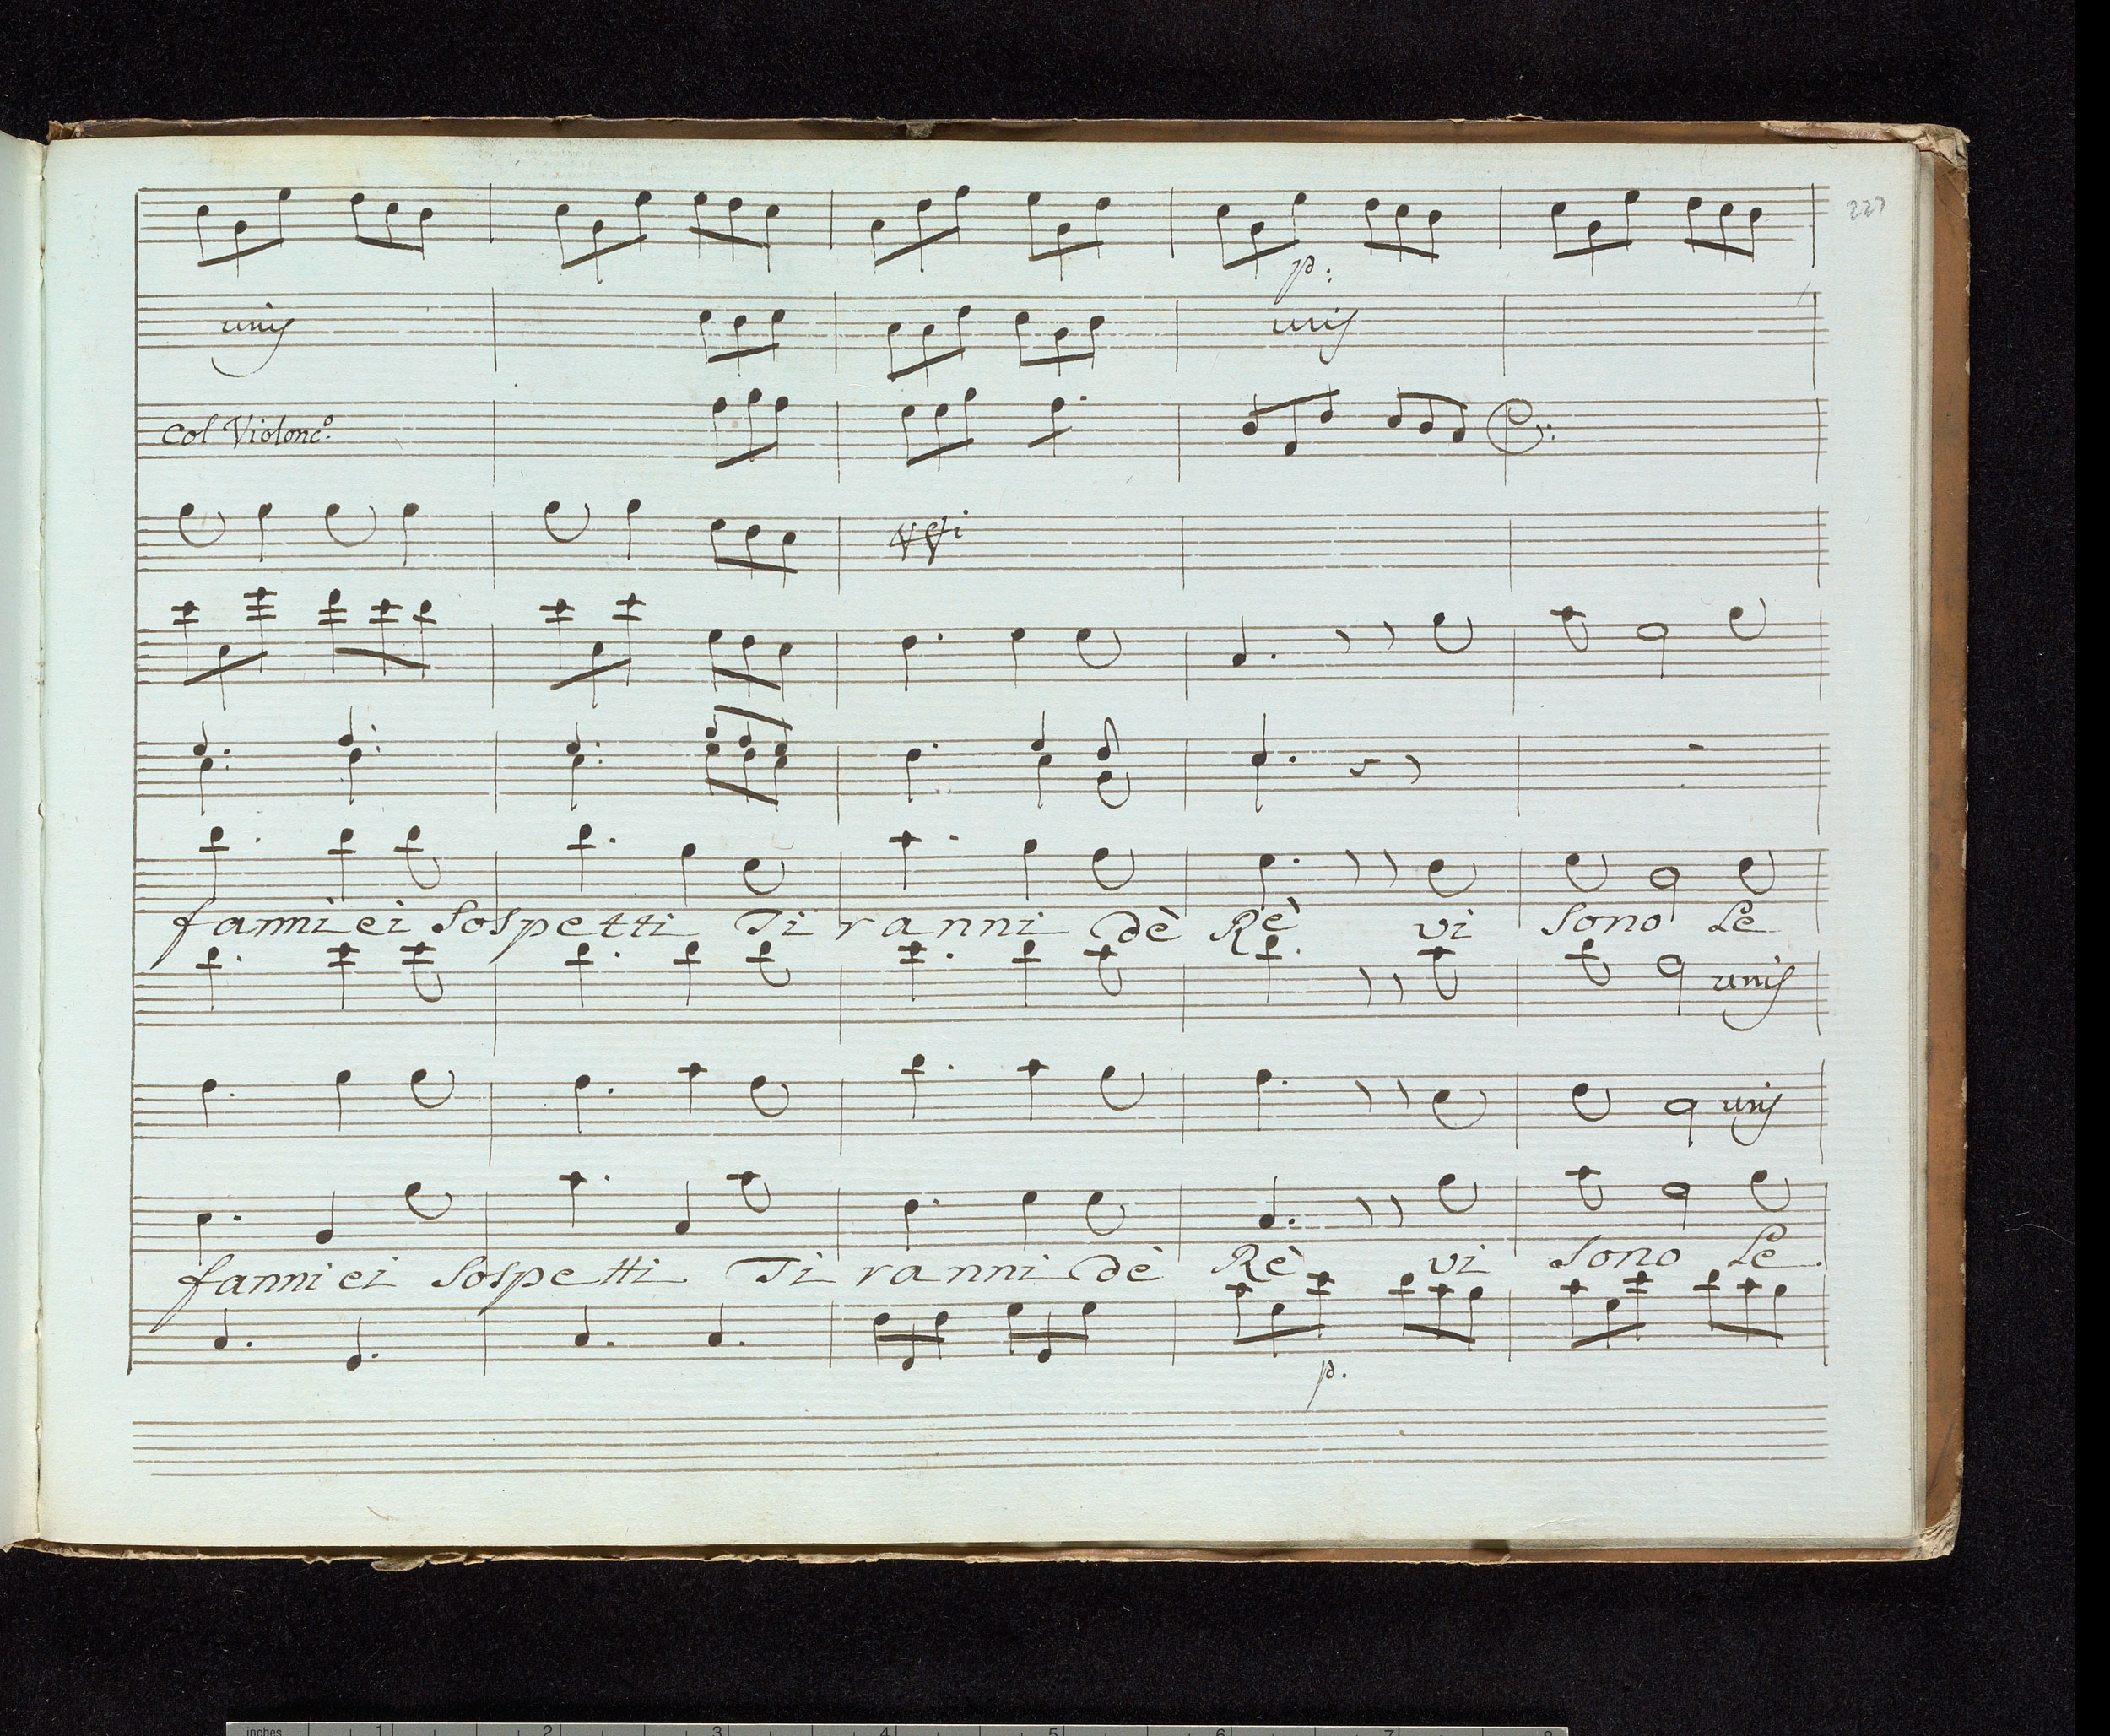 227
p:
unis
unis
Col Violonc.º
VVni
fanni ei Sospetti Ti ranni dè Rè vi Sono Le
unis
unis
fanni ei Sospetti Ti ranni dè Rè vi Sono Le
p.
inches 1 2 3 4 5 6 7 8